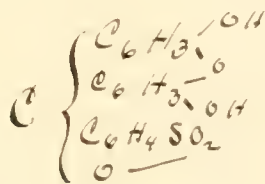 C6H3 OH
O
C C6H3 OH
C6H4SO2
O